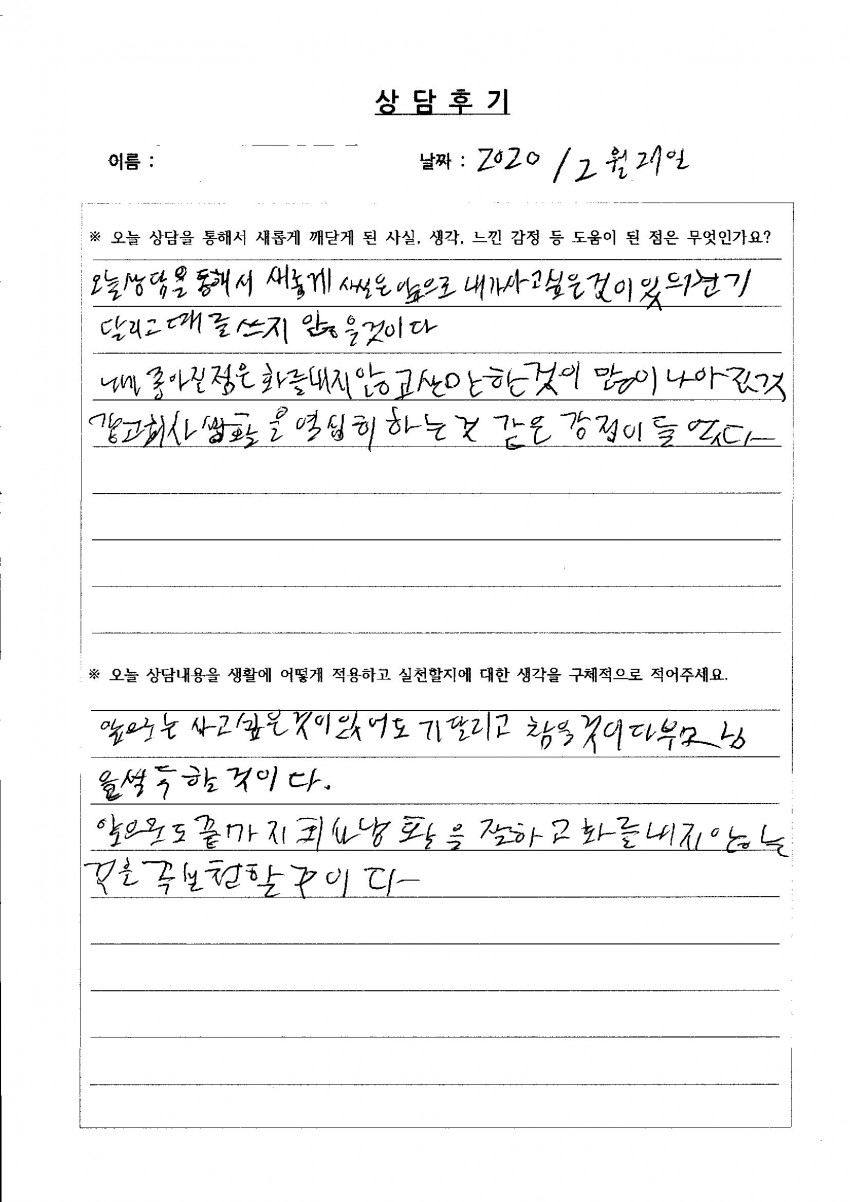 상담후기
이름 :
날짜 : 2020 / 2월 27일
※ 오늘 상담을 통해서 새롭게 깨닫게 된 사실, 생각, 느낀 감정 등 도움이 된 점은 무엇인가요?
오늘상담을통해서 새롭게 사실은 앞으로 내가사고싶은것이있 기
달리고 때를쓰지 않을것이다
좋아진점은 화를내지않고 한것이 많이 나아진것
같고회사생활을 열심히 하는것 같은 감정이 들었다
※ 오늘 상담내용을 생활에 어떻게 적용하고 실천할지에 대한 생각을 구체적으로 적어주세요.
앞으로는 사고싶은것이있어도 기달리고 참을것이다부모님
을설득할것이다.
앞으로도끝까지 회사생활을 잘하고화를내지않는
것을 할것이다